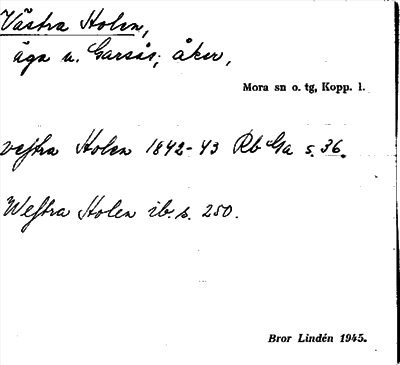 Västra Holen,
äga u. Garsås; åker,
Mora sn o. tg, Kopp. l.
vestra Holen 1842-43 Rb Ga s. 36.
Westra Holen ib. s. 250.
Bror Lindén 1945.